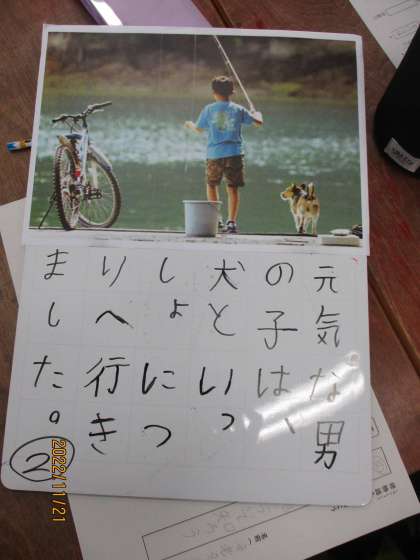 元気な男
の子は、
犬といっ
しょにつ
りへ行き
ました。
②
2022/11/21